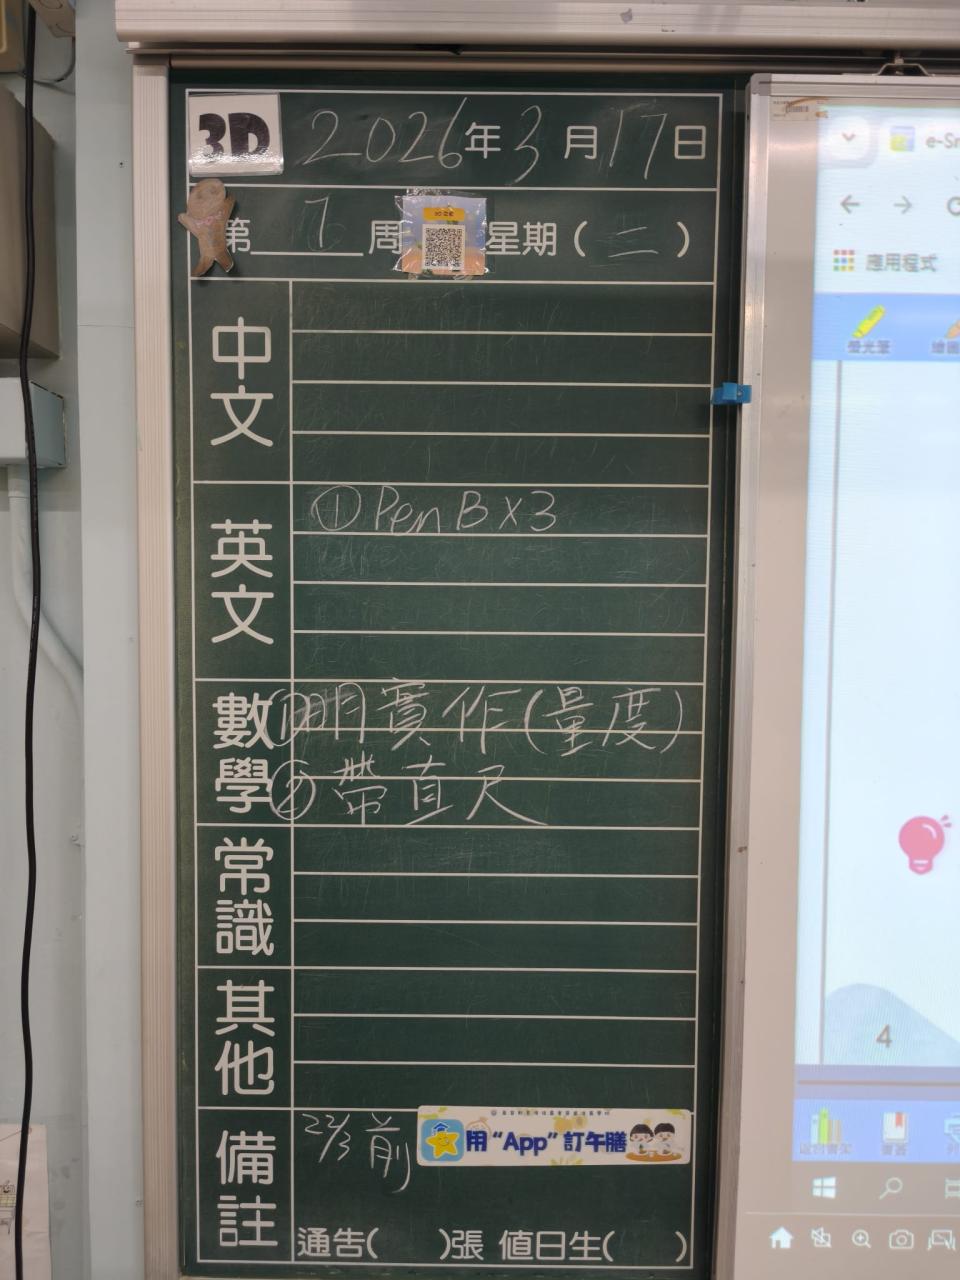 3D 2026年3月17日
第 1 周 星期(二)
中文
英文
① Pen B x3
數學
①明實作(量度)
②帶直尺
常識
其他
備註
22/3前
用“App”訂午膳
通告( )張 值日生( )
e-Sm
應用程式
螢光筆
4